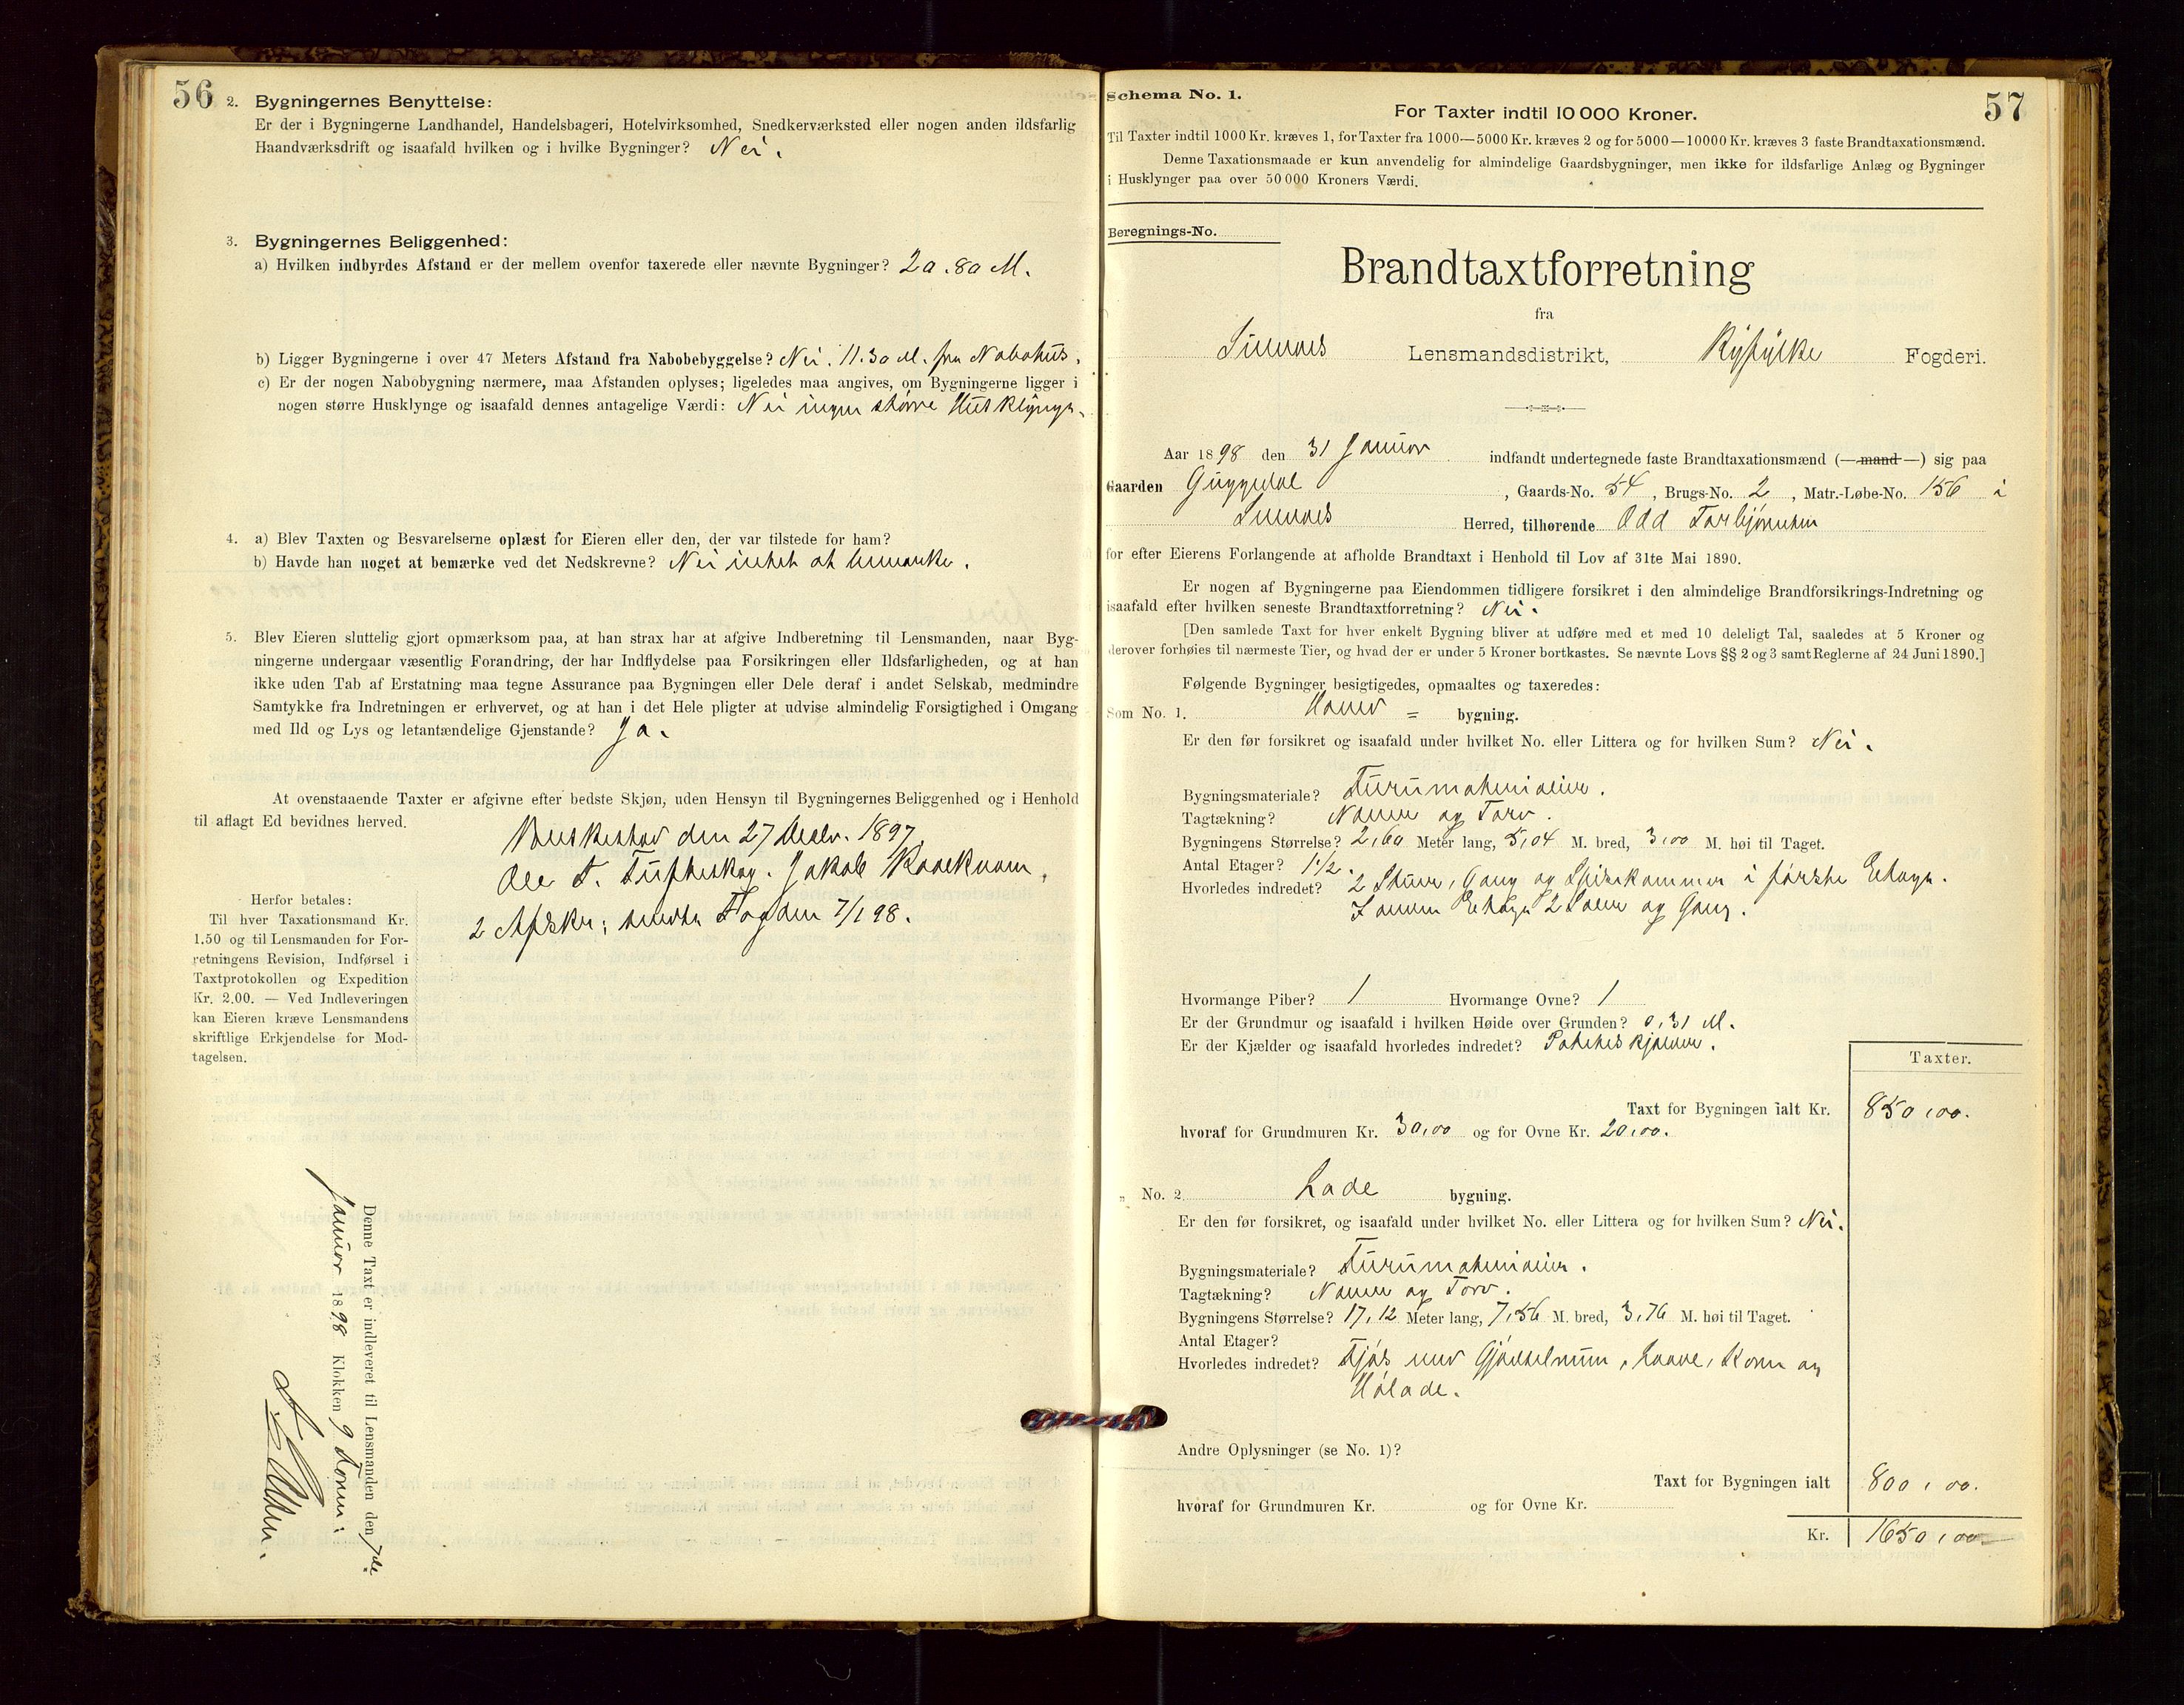 56
2. Bygningernes Benyttelse:
Er der i Bygningerne Landhandel, Handelsbageri, Hotelvirksomhed, Snedkerværksted eller nogen anden ildsfarlig
Haandværksdrift og isaafald hvilken og i hvilke Bygninger? Nei.
3. Bygningernes Beliggenhed:
a) Hvilken indbyrdes Afstand er der mellem ovenfor taxerede eller nævnte Bygninger? 20.80 M.
b) Ligger Bygningerne i over 47 Meters Afstand fra Nabobebyggelse? Nei. 11.30 M. fra Nabohus.
c) Er der nogen Nabobygning nærmere, maa Afstanden oplyses; ligeledes maa angives, om Bygningerne ligger i
nogen større Husklynge og isaafald dennes antagelige Værdi: Nei ingen større Husklynge.
4. a) Blev Taxten og Besvarelserne oplæst for Eieren eller den, der var tilstede for ham?
b) Havde han noget at bemærke ved det Nedskrevne? Nei intet at bemærke.
5. Blev Eieren sluttelig gjort opmærksom paa, at han strax har at afgive Indberetning til Lensmanden, naar Byg-
ningerne undergaar væsentlig Forandring, der har Indflydelse paa Forsikringen eller Ildsfarligheden, og at han
ikke uden Tab af Erstatning maa tegne Assurance paa Bygningen eller Dele deraf i andet Selskab, medmindre
Samtykke fra Indretningen er erhvervet, og at han i det Hele pligter at udvise almindelig Forsigtighed i Omgang
med Ild og Lys og letantændelige Gjenstande? Ja.
At ovenstaaende Taxter er afgivne efter bedste Skjøn, uden Hensyn til Bygningernes Beliggenhed og i Henhold
til aflagt Ed bevidnes herved.
den 27 Decbr. 1897
Ole T. Jakob
2 Afskr. sendte Fogden 7/1 98.
Herfor betales:
Til hver Taxationsmand Kr.
1.50 og til Lensmanden for For-
retningens Revision, Indførsel i
Taxtprotokollen og Expedition
Kr. 2.00. — Ved Indleveringen
kan Eieren kræve Lensmandens
skriftlige Erkjendelse for Mod-
tagelsen.
Denne Taxt er indleveret til Lensmanden den 7de
Januar 1898 Klokken 9 Form:
57
Schema No. 1.
For Taxter indtil 10 000 Kroner.
Til Taxter indtil 1000 Kr. kræves 1, for Taxter fra 1000—5000 Kr. kræves 2 og for 5000—10000 Kr. kræves 3 faste Brandtaxationsmænd.
Denne Taxationsmaade er kun anvendelig for almindelige Gaardsbygninger, men ikke for ildsfarlige Anlæg og Bygninger
i Husklynger paa over 50 000 Kroners Værdi.
Beregnings-No.
Brandtaxtforretning
fra
Lensmandsdistrikt, Ryfylke Fogderi.
Aar 1898 den 31 Januar indfandt undertegnede faste Brandtaxationsmænd (—mand—) sig paa
Gaarden Guggedal, Gaards-No. 54, Brugs-No. 2, Matr.-Løbe-No. 156 i
Herred, tilhørende Odd Torbjørnsen
for efter Eierens Forlangende at afholde Brandtaxt i Henhold til Lov af 31te Mai 1890.
Er nogen af Bygningerne paa Eiendommen tidligere forsikret i den almindelige Brandforsikrings-Indretning og
isaafald efter hvilken seneste Brandtaxtforretning? Nei.
[Den samlede Taxt for hver enkelt Bygning bliver at udføre med et med 10 deleligt Tal, saaledes at 5 Kroner og
derover forhøies til nærmeste Tier, og hvad der er under 5 Kroner bortkastes. Se nævnte Lovs §§ 2 og 3 samt Reglerne af 24 Juni 1890.]
Følgende Bygninger besigtigedes, opmaaltes og taxeredes:
Som No. 1. Hoved = bygning.
Er den før forsikret og isaafald under hvilket No. eller Littera og for hvilken Sum? Nei.
Bygningsmateriale? Furumaterialier.
Tagtækning? Næver og Torv.
Bygningens Størrelse? 2,60 Meter lang, 5,04 M. bred, 3,00 M. høi til Taget.
Antal Etager? 1 1/2.
Hvorledes indredet? 2 Stuer, Gang og Spisekammer i første Etage.
I anden Etage 2 Saler og Gang.
Hvormange Piber? 1 Hvormange Ovne? 1
Er der Grundmur og isaafald i hvilken Høide over Grunden? 0,31 M.
Er der Kjælder og isaafald hvorledes indredet? Poteteskjælder.
Taxter.
Taxt for Bygningen ialt Kr. 850,00.
hvoraf for Grundmuren Kr. 30,00 og for Ovne Kr. 20,00.
„ No. 2 Lade bygning.
Er den før forsikret, og isaafald under hvilket No. eller Littera og for hvilken Sum? Nei.
Bygningsmateriale? Furumaterialier.
Tagtækning? Næver og Torv.
Bygningens Størrelse? 17,12 Meter lang, 7,56 M. bred, 3,76 M. høi til Taget.
Antal Etager?
Hvorledes indredet? Fjøs med Gjødselrum, Laave, Korn og
Hølade.
Andre Oplysninger (se No. 1)?
Taxt for Bygningen ialt 800,00.
hvoraf for Grundmuren Kr. og for Ovne Kr.
Kr. 1650,00